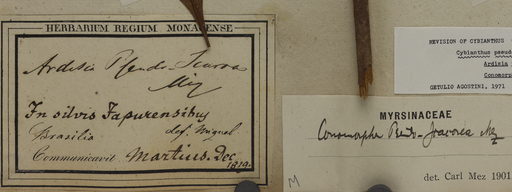 HERBARIUM REGIUM MONACENSE
Ardisia Pseudo-Icacorea
Miq
In silvis Japurensibus
Brasilia def. Miquel
Communicavit Martius. Dec.
REVISION OF CYBIANTHUS
Cybianthus pseudo
Ardisia
Conomorp
GETULIO AGOSTINI, 1971
MYRSINACEAE
Conomorpha Pseudo-Icacorea Mez
det. Carl Mez 1901